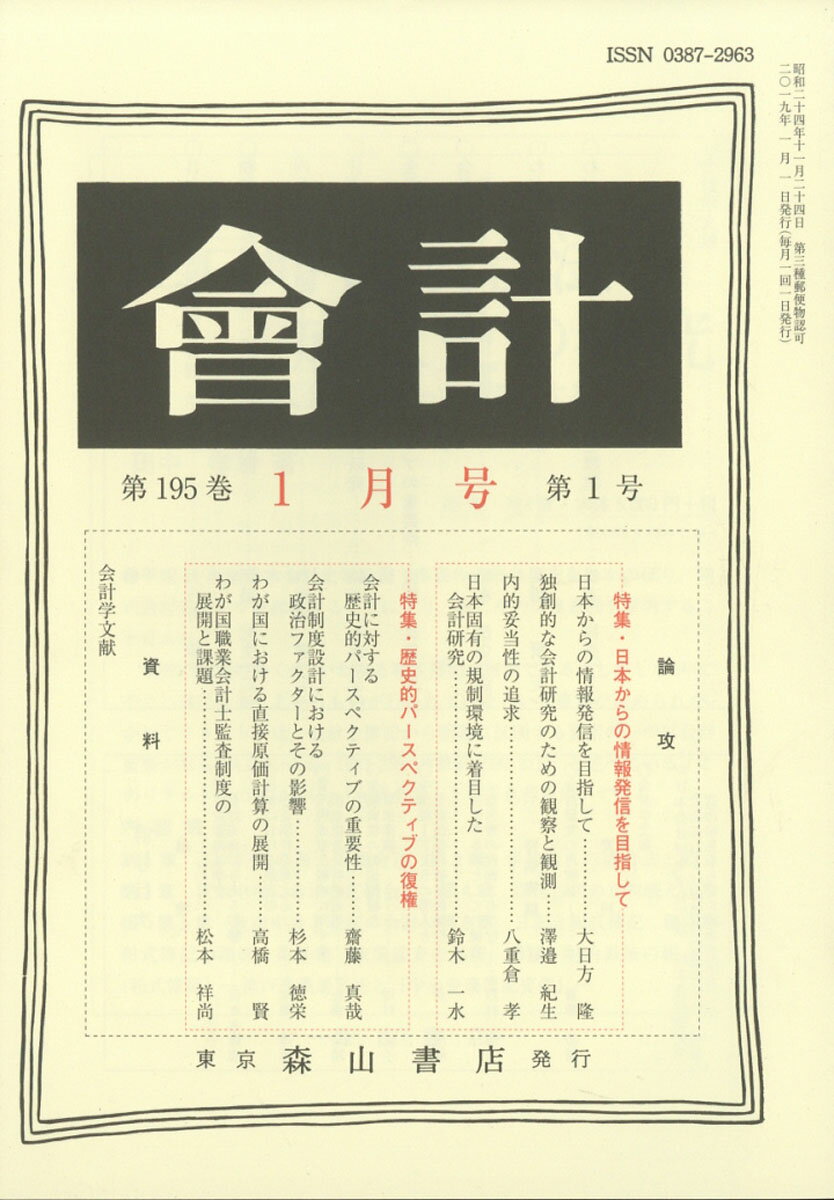 ISSN 0387-2963
昭和二十四年十一月二十四日 第三種郵便物認可
二〇一九年一月一日発行(毎月一回一日発行)
會計
第195巻 1月号 第1号
論攻
特集・日本からの情報発信を目指して
日本からの情報発信を目指して……… 大日方 隆
独創的な会計研究のための観察と観測…… 澤邉 紀生
内的妥当性の追求……………………… 八重倉 孝
日本固有の規制環境に着目した
会計研究……………………………… 鈴木 一水
特集・歴史的パースペクティブの復権
会計に対する
歴史的パースペクティブの重要性…… 齋藤 真哉
会計制度設計における
政治ファクターとその影響…………… 杉本 徳栄
わが国における直接原価計算の展開…… 高橋 賢
わが国職業会計士監査制度の
展開と課題……………………………… 松本 祥尚
資料
会計学文献
東京 森山書店 発行